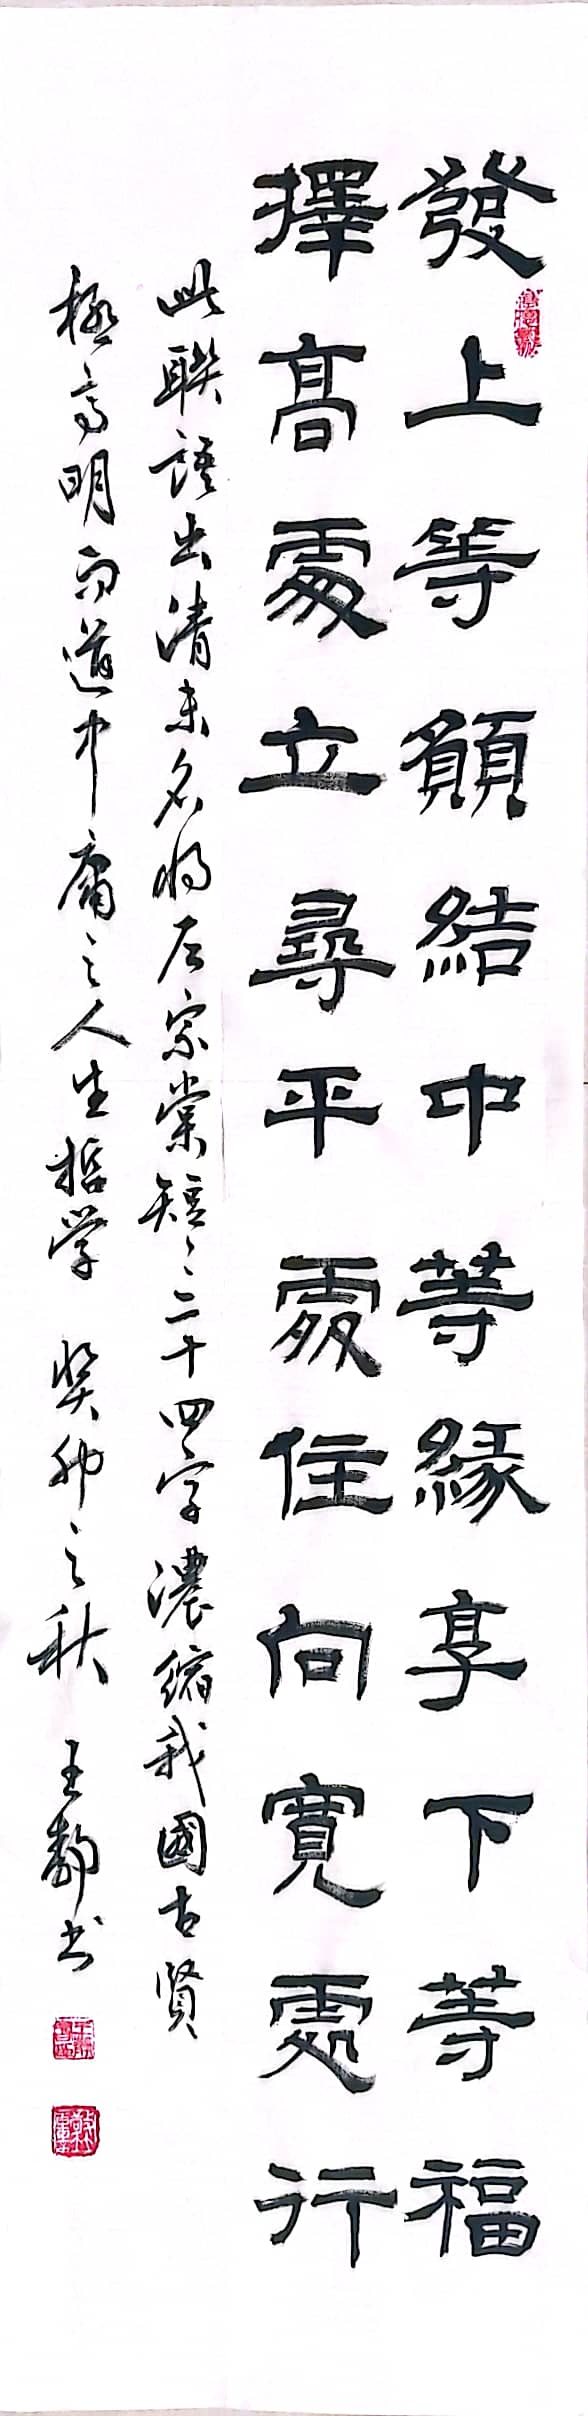 發上等願結中等緣享下等福
擇高處立尋平處住向寬處行
此聯語出清末名将左宗棠短短二十四字濃縮我國古賢
極高明而道中庸之人生哲学 癸卯之秋 王靜书